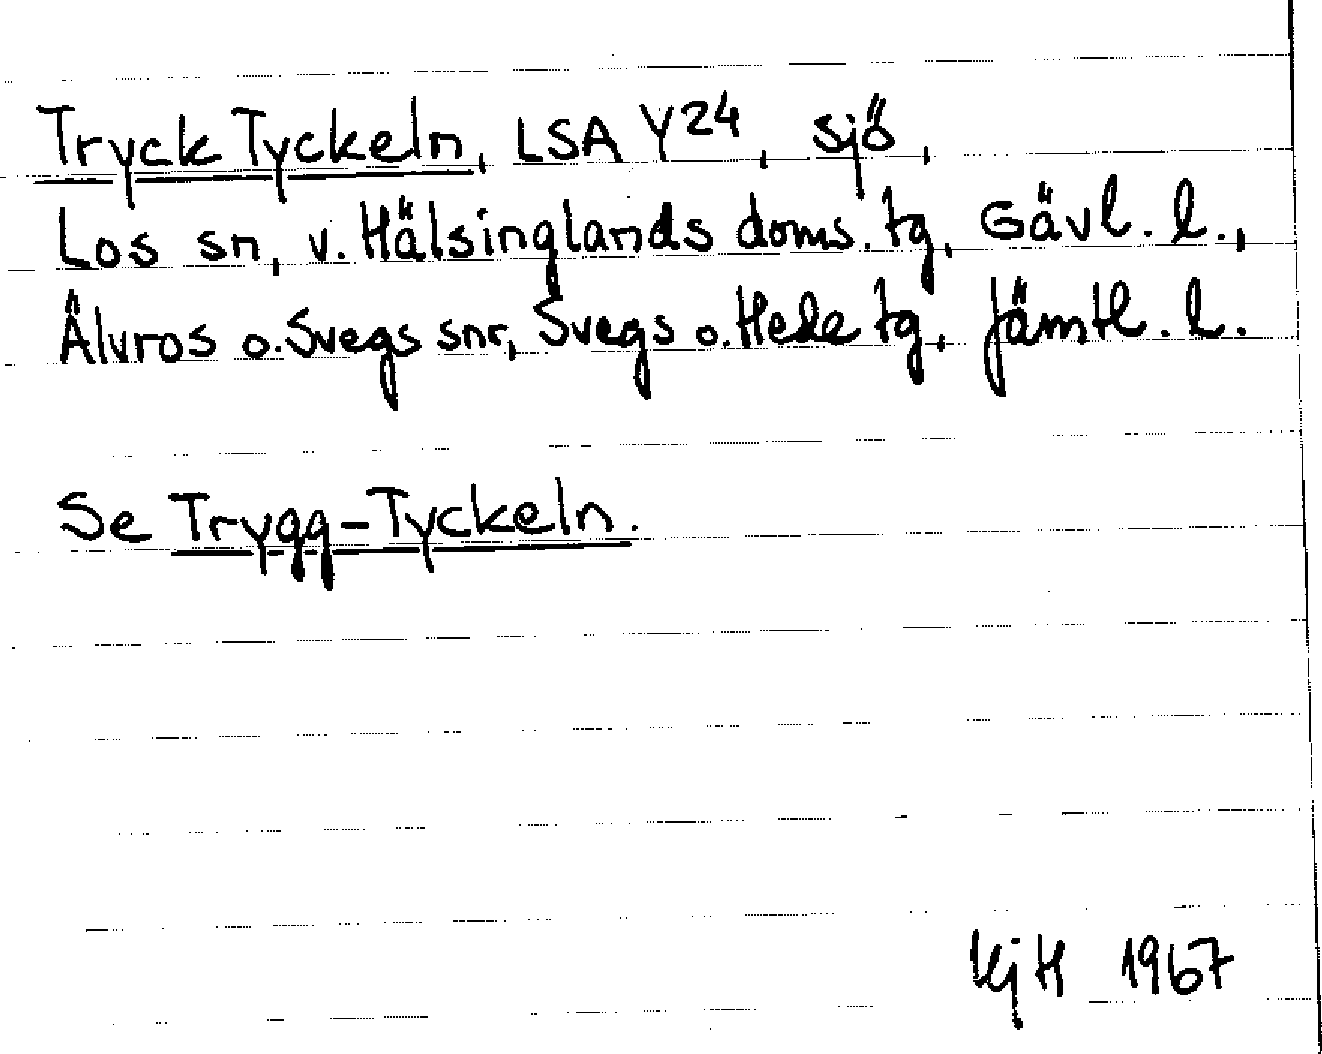 Tryck Tyckeln, LSA Y24, sjö,
Los sn, v. Hälsinglands doms. tg, Gävl. l.,
Älvros o. Svegs snr, Svegs o. Hede tg, Jämtl. l.
Se Trygg-Tyckeln.
KjH 1967